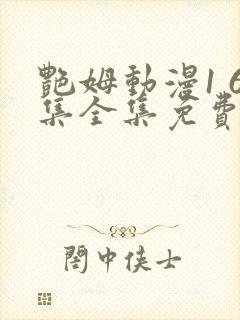 艷姆動漫1 6
集全集免費
閣中俠士